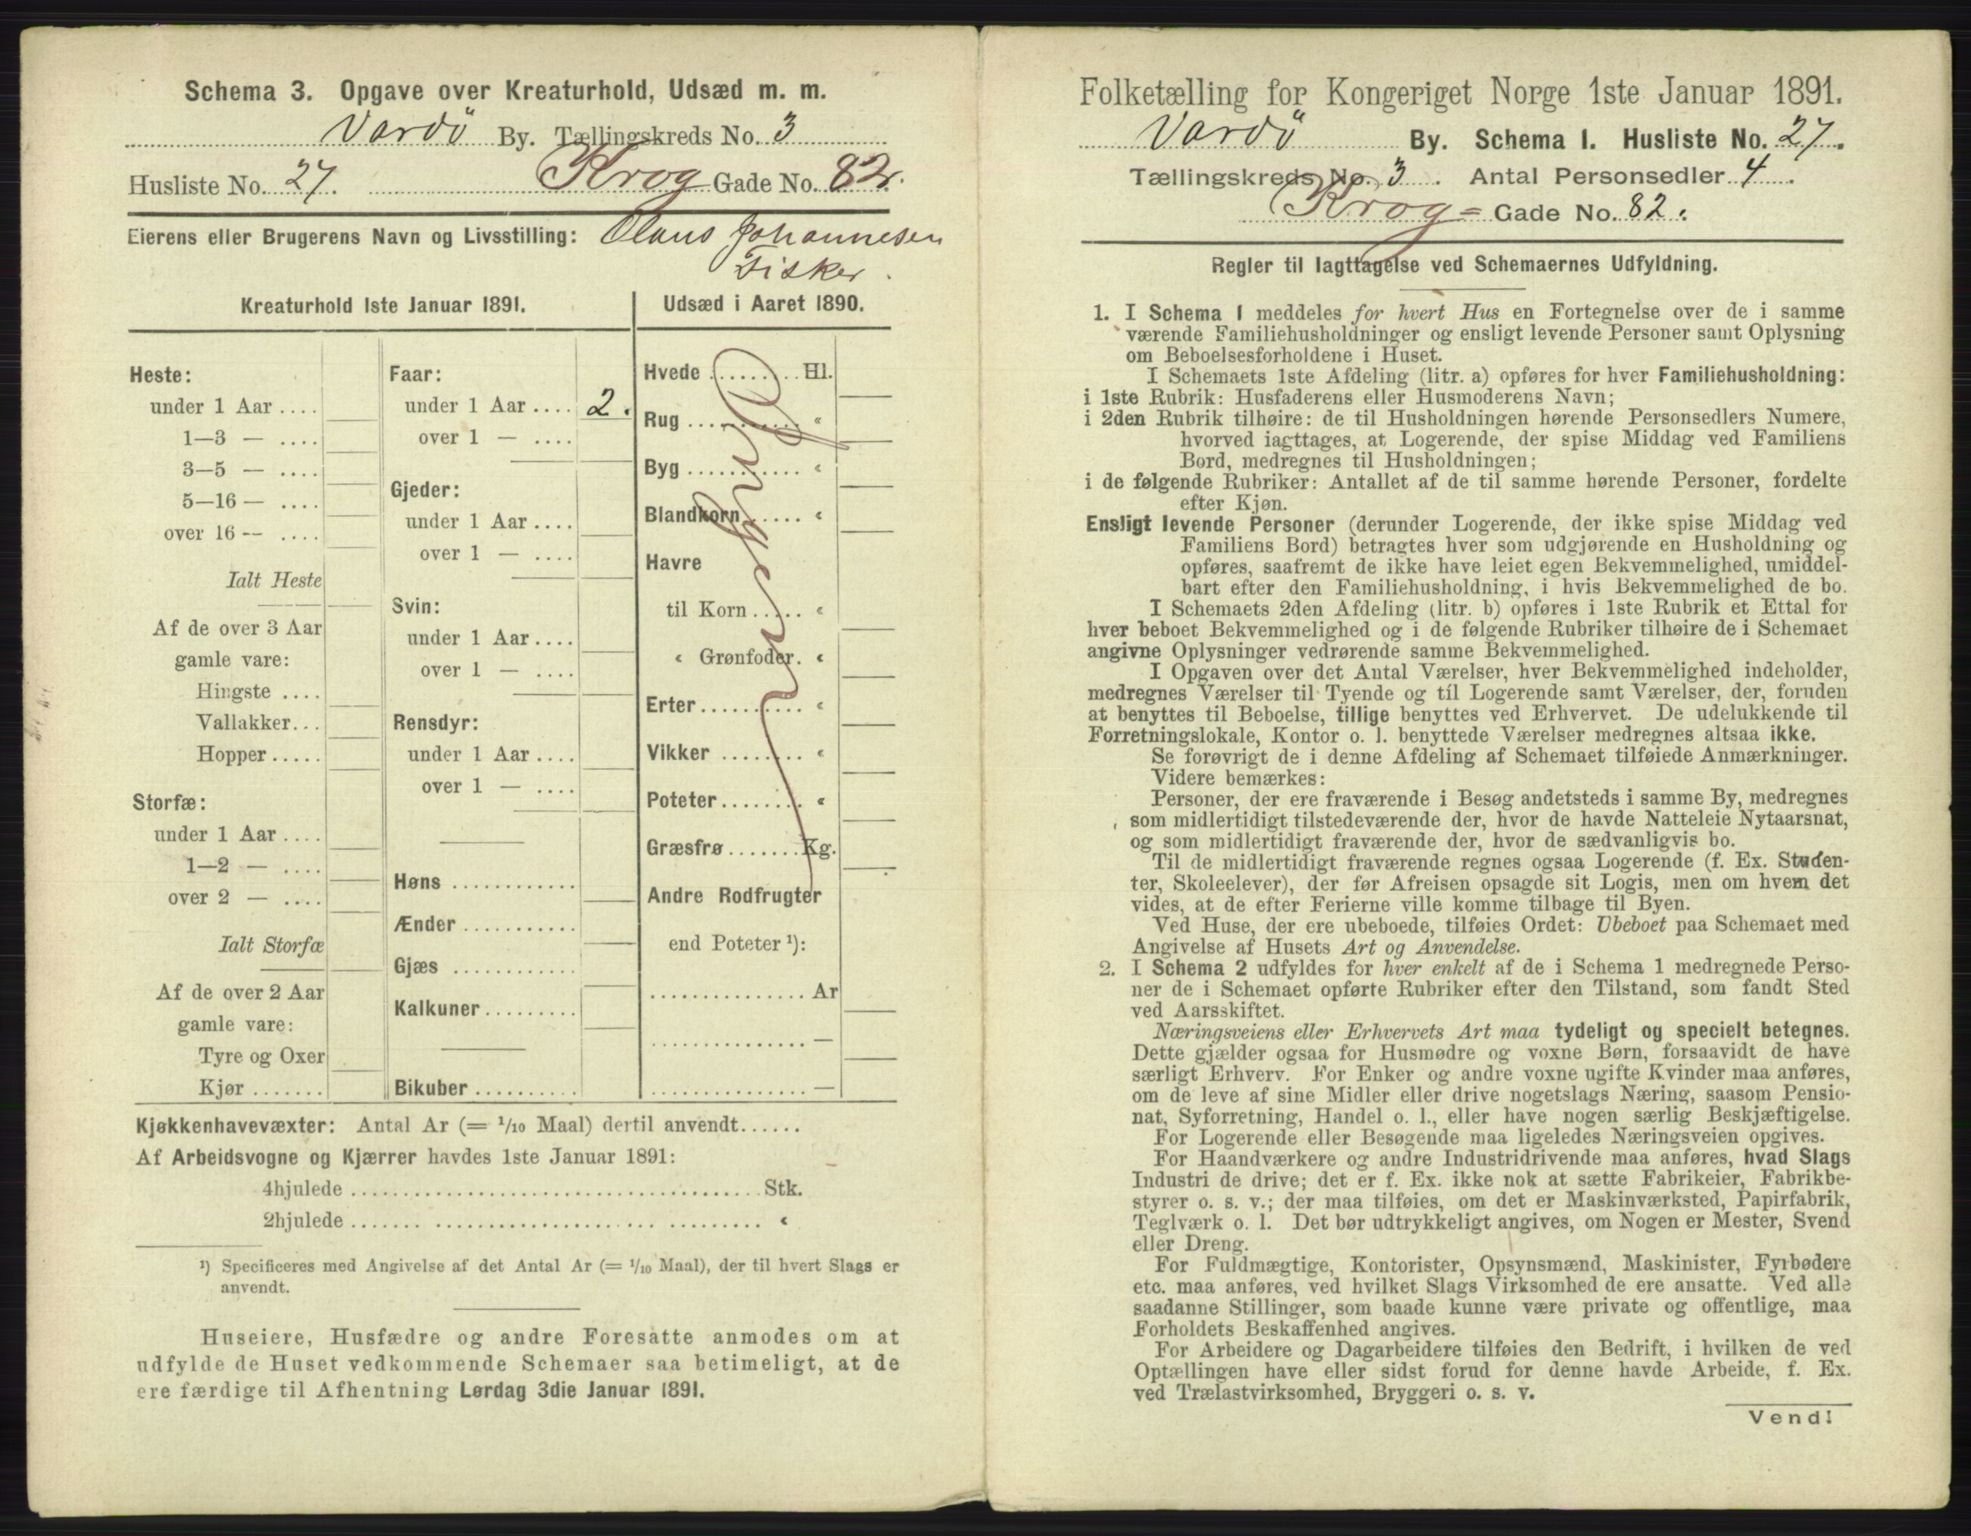 Schema 3. Opgave over Kreaturhold, Udsæd m. m.
Vardö By. Tællingskreds No. 3
Husliste No. 27. Krog Gade No. 82.
Eierens eller Brugerens Navn og Livsstilling: Olaus Johannesen
Fisker.
Kreaturhold 1ste Januar 1891.
Heste:
under 1 Aar ....
1—3 — ....
3—5 — ....
5—16 — ....
over 16 — ....
Ialt Heste
Af de over 3 Aar
gamle vare:
Hingste ....
Vallakker...
Hopper .....
Storfæ:
under 1 Aar ....
1—2 — ....
over 2 — ....
Ialt Storfæ
Af de over 2 Aar
gamle vare:
Tyre og Oxer
Kjør .......
Faar:
under 1 Aar .... 2.
over 1 — ....
Gjeder:
under 1 Aar ....
over 1 — ....
Svin:
under 1 Aar ....
over 1 — ....
Rensdyr:
under 1 Aar ....
over 1 — ....
Høns ............
Ænder ...........
Gjæs ............
Kalkuner .........
Bikuber ..........
Udsæd i Aaret 1890.
Hvede ......... Hl.
Rug ........... "
Byg ........... "
Blandkorn ..... "
Havre
til Korn ..... "
" Grønfoder. "
Erter .......... "
Vikker ......... "
Poteter ........ "
Græsfrø ....... Kg.
Andre Rodfrugter
end Poteter ¹):
............... Ar
............... —
............... —
Kjøkkenhavevæxter: Antal Ar (= 1/10 Maal) dertil anvendt......
Af Arbeidsvogne og Kjærrer havdes 1ste Januar 1891:
4hjulede ........................................ Stk.
2hjulede ........................................ "
¹) Specificeres med Angivelse af det Antal Ar (= 1/10 Maal), der til hvert Slags er
anvendt.
Huseiere, Husfædre og andre Foresatte anmodes om at
udfylde de Huset vedkommende Schemaer saa betimeligt, at de
ere færdige til Afhentning Lørdag 3die Januar 1891.
Folketælling for Kongeriget Norge 1ste Januar 1891.
Vardö By. Schema 1. Husliste No. 27.
Tællingskreds No. 3. Antal Personsedler 4.
Krog= Gade No. 82.
Regler til Iagttagelse ved Schemaernes Udfyldning.
1. I Schema 1 meddeles for hvert Hus en Fortegnelse over de i samme
værende Familiehusholdninger og ensligt levende Personer samt Oplysning
om Beboelsesforholdene i Huset.
I Schemaets 1ste Afdeling (litr. a) opføres for hver Familiehusholdning:
i 1ste Rubrik: Husfaderens eller Husmoderens Navn;
i 2den Rubrik tilhøire: de til Husholdningen hørende Personsedlers Numere,
hvorved iagttages, at Logerende, der spise Middag ved Familiens
Bord, medregnes til Husholdningen;
i de følgende Rubriker: Antallet af de til samme hørende Personer, fordelte
efter Kjøn.
Ensligt levende Personer (derunder Logerende, der ikke spise Middag ved
Familiens Bord) betragtes hver som udgjørende en Husholdning og
opføres, saafremt de ikke have leiet egen Bekvemmelighed, umiddel-
bart efter den Familiehusholdning, i hvis Bekvemmelighed de bo.
I Schemaets 2den Afdeling (litr. b) opføres i 1ste Rubrik et Ettal for
hver beboet Bekvemmelighed og i de følgende Rubriker tilhøire de i Schemaet
angivne Oplysninger vedrørende samme Bekvemmelighed.
I Opgaven over det Antal Værelser, hver Bekvemmelighed indeholder,
medregnes Værelser til Tyende og til Logerende samt Værelser, der, foruden
at benyttes til Beboelse, tillige benyttes ved Erhvervet. De udelukkende til
Forretningslokale, Kontor o. l. benyttede Værelser medregnes altsaa ikke.
Se forøvrigt de i denne Afdeling af Schemaet tilføiede Anmærkninger.
Videre bemærkes:
Personer, der ere fraværende i Besøg andetsteds i samme By, medregnes
som midlertidigt tilstedeværende der, hvor de havde Natteleie Nytaarsnat,
og som midlertidigt fraværende der, hvor de sædvanligvis bo.
Til de midlertidigt fraværende regnes ogsaa Logerende (f. Ex. Studen-
ter, Skoleelever), der før Afreisen opsagde sit Logis, men om hvem det
vides, at de efter Ferierne ville komme tilbage til Byen.
Ved Huse, der ere ubeboede, tilføies Ordet: Ubeboet paa Schemaet med
Angivelse af Husets Art og Anvendelse.
2. I Schema 2 udfyldes for hver enkelt af de i Schema 1 medregnede Perso-
ner de i Schemaet opførte Rubriker efter den Tilstand, som fandt Sted
ved Aarsskiftet.
Næringsveiens eller Erhvervets Art maa tydeligt og specielt betegnes.
Dette gjælder ogsaa for Husmødre og voxne Børn, forsaavidt de have
særligt Erhverv. For Enker og andre voxne ugifte Kvinder maa anføres,
om de leve af sine Midler eller drive nogetslags Næring, saasom Pensio-
nat, Syforretning, Handel o. l., eller have nogen særlig Beskjæftigelse.
For Logerende eller Besøgende maa ligeledes Næringsveien opgives.
For Haandværkere og andre Industridrivende maa anføres, hvad Slags
Industri de drive; det er f. Ex. ikke nok at sætte Fabrikeier, Fabrikbe-
styrer o. s. v.; der maa tilføies, om det er Maskinværksted, Papirfabrik,
Teglværk o. l. Det bør udtrykkeligt angives, om Nogen er Mester, Svend
eller Dreng.
For Fuldmægtige, Kontorister, Opsynsmænd, Maskinister, Fyrbødere
etc. maa anføres, ved hvilket Slags Virksomhed de ere ansatte. Ved alle
saadanne Stillinger, som baade kunne være private og offentlige, maa
Forholdets Beskaffenhed angives.
For Arbeidere og Dagarbeidere tilføies den Bedrift, i hvilken de ved
Optællingen have eller sidst forud for denne havde Arbeide, f. Ex.
ved Trælastvirksomhed, Bryggeri o. s. v.
Vend!